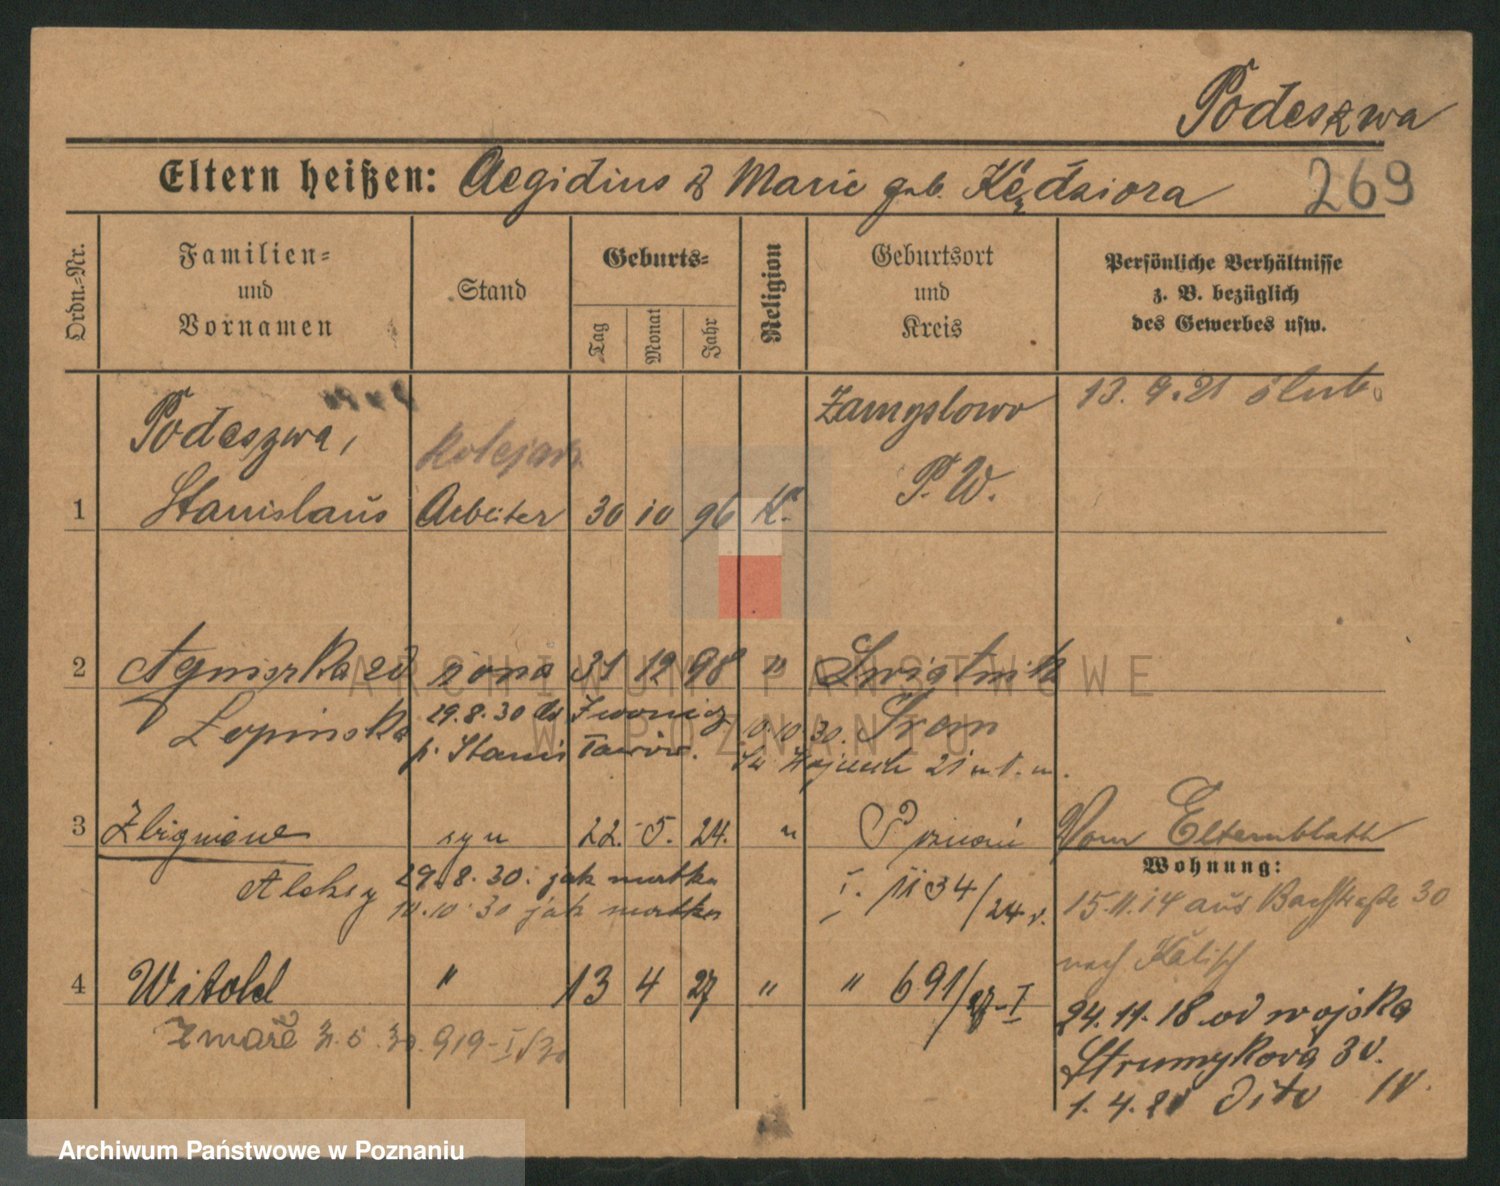 Podeszwa
Eltern heißen: Aegidius & Marie geb. Kędziora
269
Ordn.=Nr.
Familien=
und
Vornamen
Stand
Geburts=
Tag
Monat
Jahr
Religion
Geburtsort
und
Kreis
Persönliche Verhältnisse
z. B. bezüglich
des Gewerbes usw.
Podeszwa,
kolejarz
Zamysłowo
13. 9. 21 ślub.
1 Stanislaus Arbeiter 30 10 96 K. P. W.
2 Agnieszka zd żona 31 12 98 "
Srem
29.8.30 do Iwonicz
10.10.30.
p. Stanisławów.
3 Zbigniew syn 22. 5. 24. " Poznań Vom Elternblatt
Wohnung:
Aleksy 29.8.30. jak matka I. 1134/24 r.
10.10.30 jak matka
15.11.14 aus Bachstraße 30
nach Kalisch
4 Witold " 13 4 27 " " 691/27-I
24.11.18 od wojska
Zmarł 919-I/30
Strumykova 3 v.
1. 4. dito IV.
ARCHIWUM PAŃSTWOWE
W POZNANIU
Archiwum Państwowe w Poznaniu